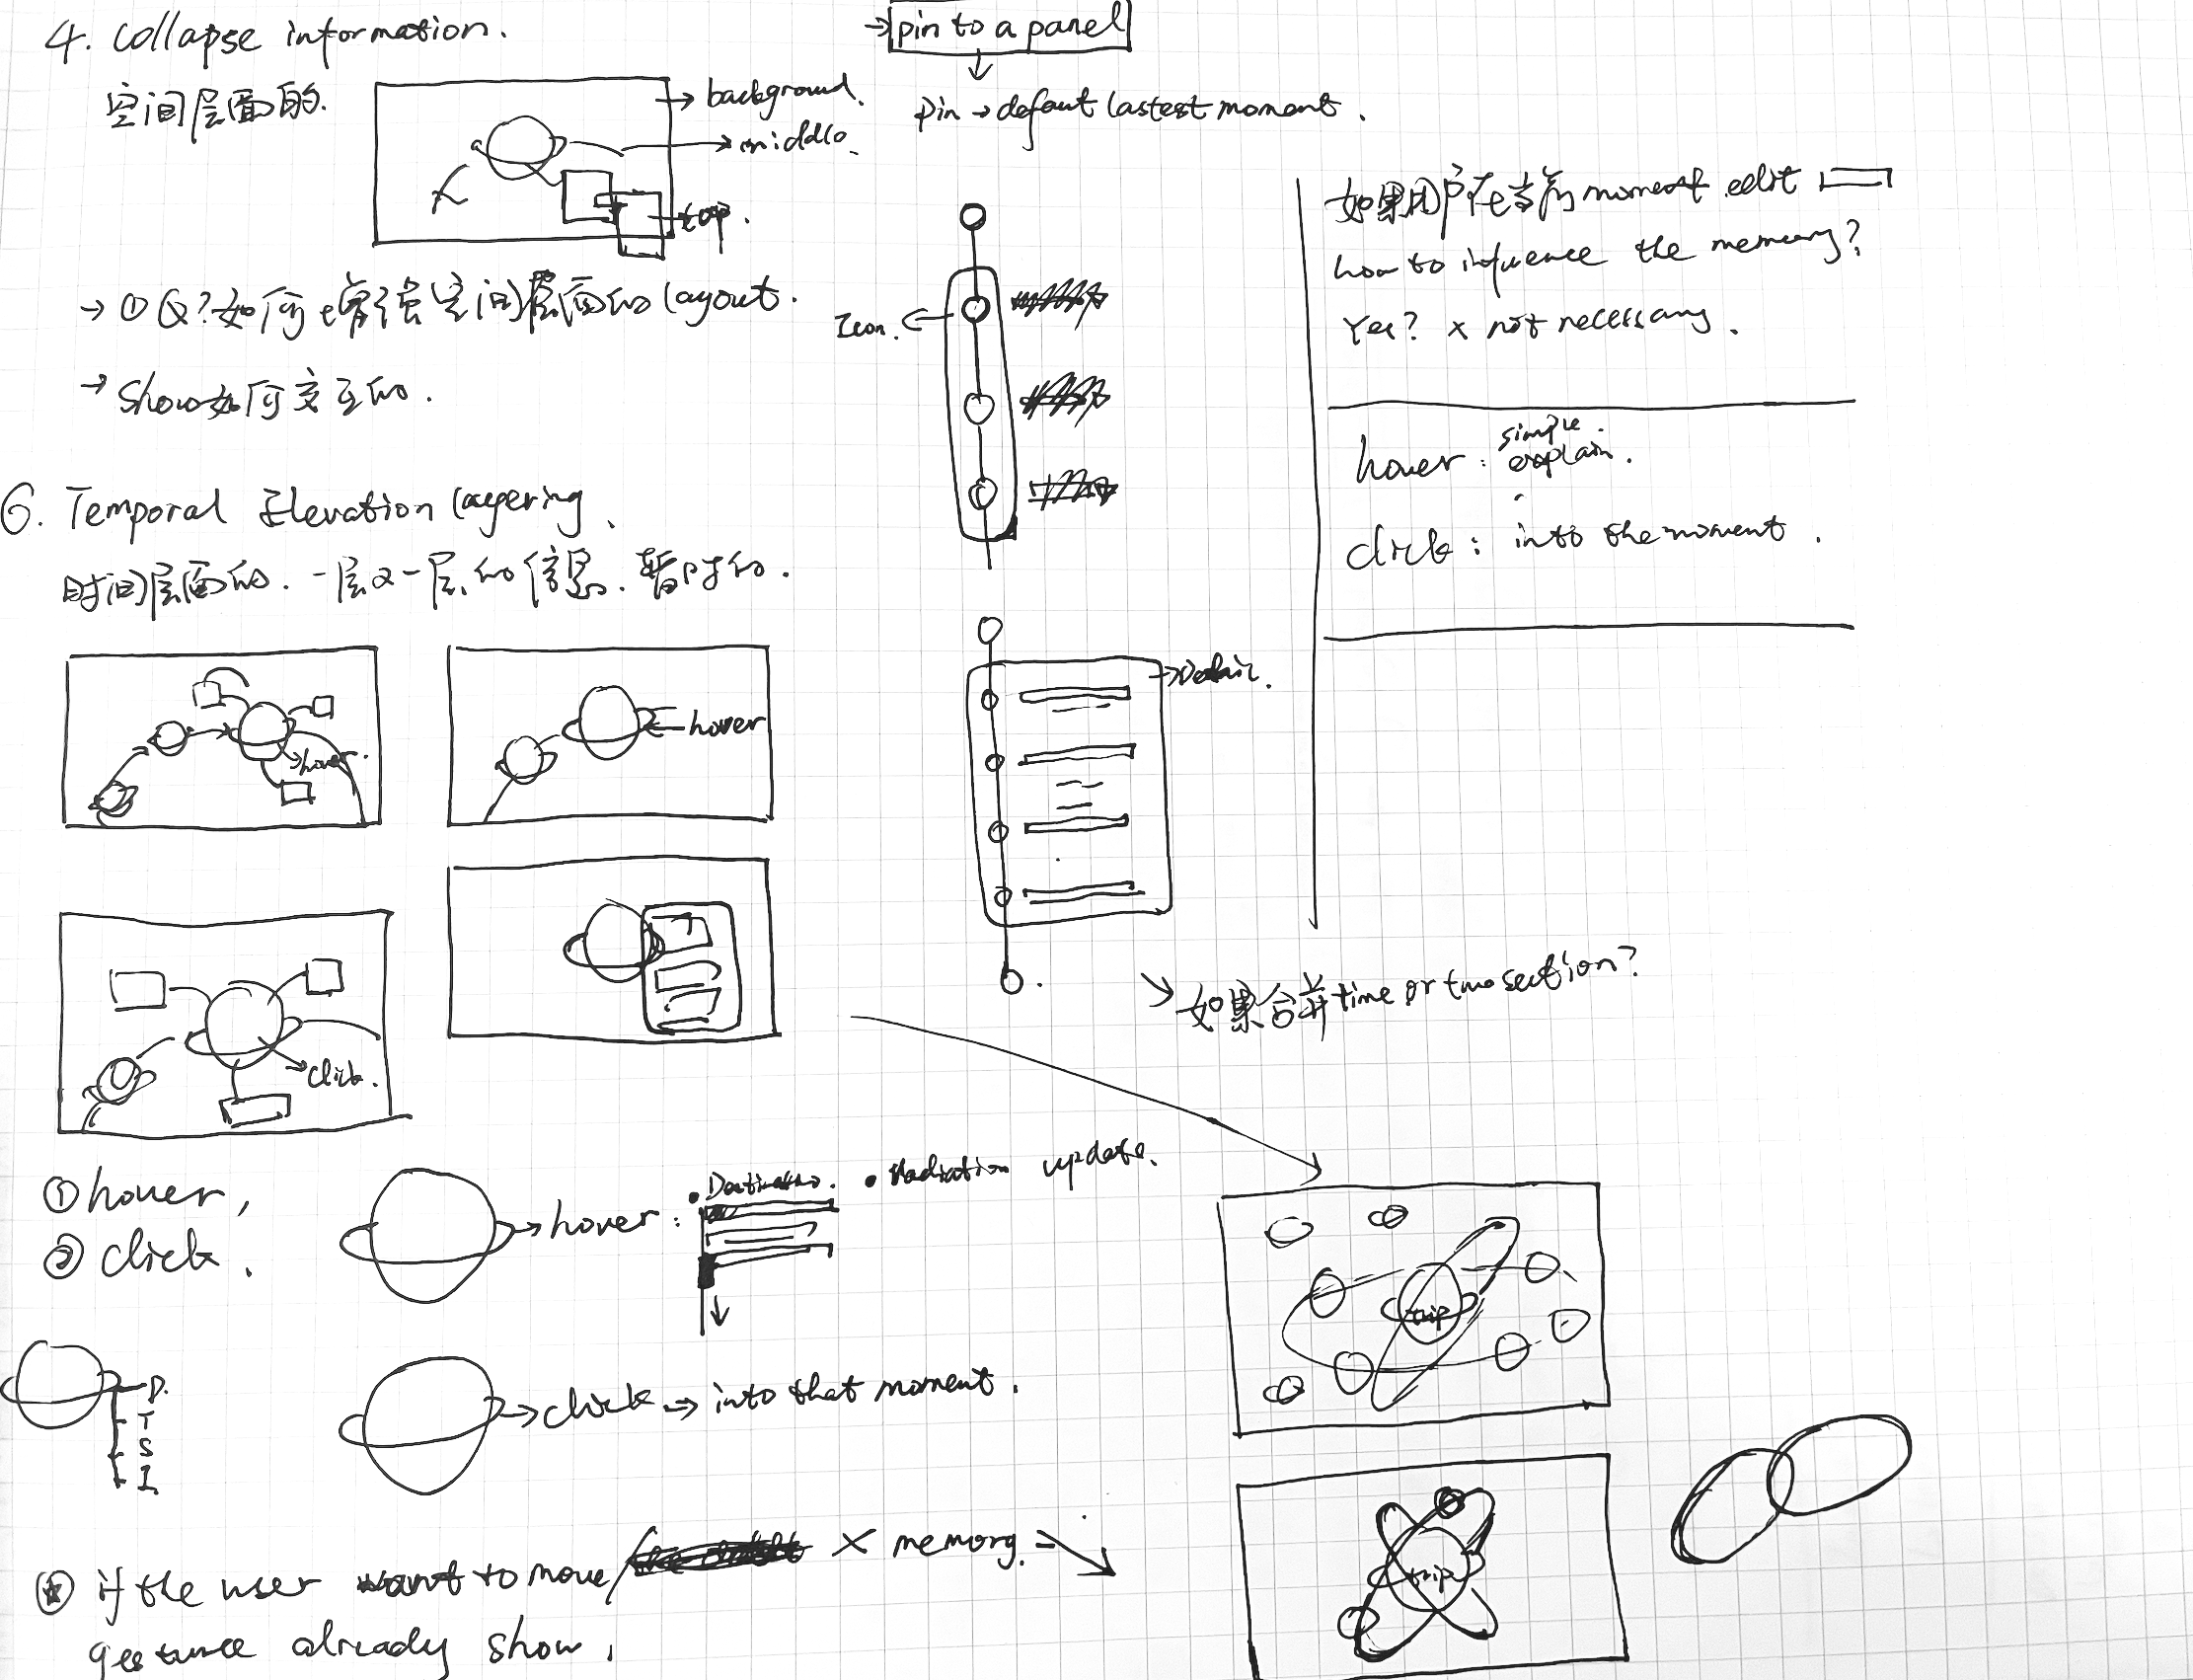 4. Collapse information.
空间层面的.
→ background.
→ middle.
→ top.
→ ① Q?如何增强空间层面的layout.
→ Show如何交互的.
6. Temporal Elevation layering.
时间层面的. 一层又一层的信息. 暂时的.
hover.
← hover
click.
① hover,
② click.
→ hover:
• Radiation update.
D.
T
S
I
→ click → into that moment.
if the user want to move/ × memory.
gesture already show.
→ pin to a panel
pin → defaut lastest moment.
Icon.
→ Detail.
→ 如果合并time or two section?
trip
trip
如果用户在当前moment edit
how to influence the memory?
Yes? × not necessary.
hover: simple explain.
click: into the moment.